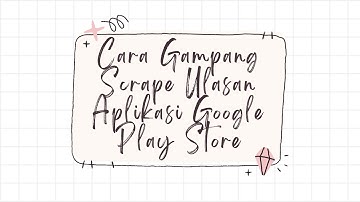 Cara Gampang
Scrape Ulasan
Aplikasi Google
Play Store